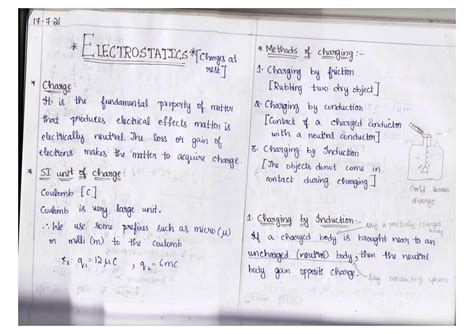 17-7-21
* ELECTROSTATICS * [Charges at rest]
* Charge:
It is the fundamental property of matter
that produces electrical effects matter is
electrically neutral. The loss or gain of
electrons makes the matter to acquire charge
* SI unit of charge:
Coulomb [C]
Coulomb is very large unit.
∴ We use some prefixes such as micro (μ)
or milli (m) to the Coulomb
q₁ = 12 μC , q₂ = 6mc
* Methods of charging:-
1. Charging by friction
[Rubbing two dry object]
2. Charging by conduction
[Contact of a charged conductor
with a neutral conductor]
3. Charging by Induction
[The objects donot come in
contact during charging]
Gold leaves
diverge
1. Charging by Induction:-
say a positively charged body
If a charged body is brought near to an
uncharged (neutral) body, then the neutral
body gain opposite charge.
say conducting sphere